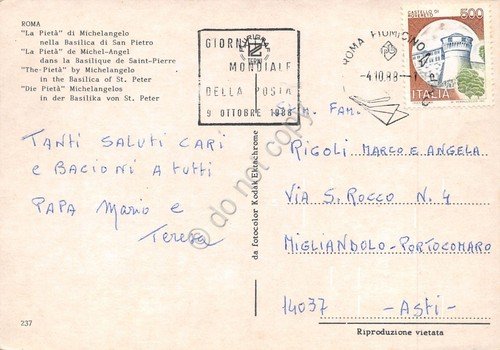 ROMA
"La Pietà" di Michelangelo
nella Basilica di San Pietro
"La Pietà" de Michel-Angel
dans la Basilique de Saint-Pierre
"The-Pietà" by Michelangelo
in the Basilica of St. Peter
"Die Pietà" Michelangelos
in der Basilika von St. Peter
TANTI SALUTI CARI
E BACIONI A TUTTI
PAPA MARIO E
TERESA
237
GIORNATA
MONDIALE
DELLA POSTA
9 OTTOBRE 1988
da fotocolor Kodak Ektachrome
© do not copy
ROMA FIUMICINO
4.10.88
CASTELLO DI
500
ITALIA
FAM.
RIGOLI MARCO E ANGELA
VIA S. ROCCO N. 4
MIGLIANDOLO - PORTOCOMARO
14037 - ASTI -
Riproduzione vietata